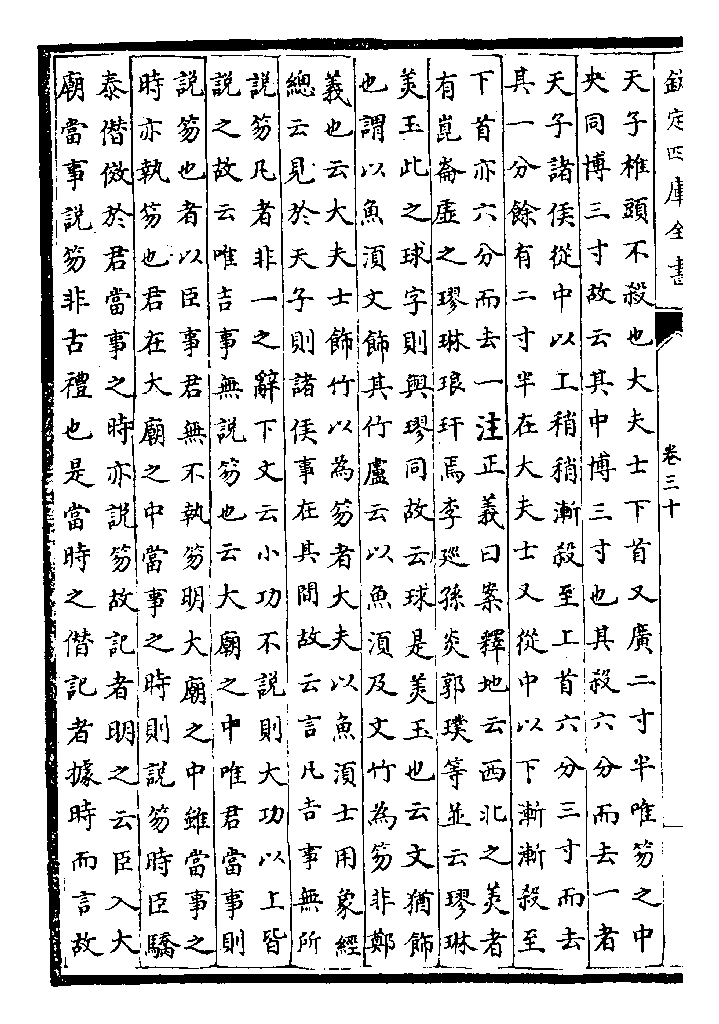 欽定四庫全書
卷三十
天子椎頭不殺也大夫士下首又廣二寸半唯笏之中
央同博三寸故云其中博三寸也其殺六分而去一者
天子諸侯從中以上稍稍漸殺至上首六分三寸而去
其一分餘有二寸半在大夫士又從中以下漸漸殺至
下首亦六分而去一注正義曰案釋地云西北之美者
有崑崙虛之璆琳琅玕焉李廵孫炎郭璞等並云璆琳
美玉此之球字則與璆同故云球是美玉也云文猶飾
也謂以魚須文飾其竹盧云以魚須及文竹為笏非鄭
義也云大夫士飾竹以為笏者大夫以魚須士用象經
總云見於天子則諸侯事在其間故云言凡吉事無所
說笏凡者非一之辭下文云小功不說則大功以上皆
說之故云唯吉事無說笏也云大廟之中唯君當事則
說笏也者以臣事君無不執笏明大廟之中雖當事之
時亦執笏也君在大廟之中當事之時則說笏時臣驕
泰僭傚於君當事之時亦說笏故記者明之云臣入大
廟當事說笏非古禮也是當時之僭記者據時而言故